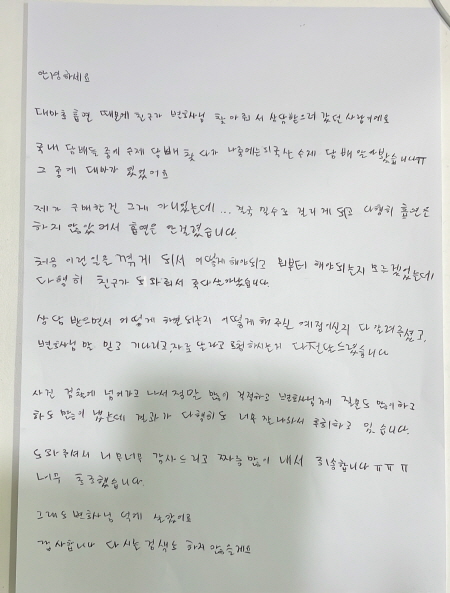 안녕하세요
대마초 흡연 때문에 친구가 변호사님 찾아줘서 상담받으러 갔던 사람이에요
국내 담배들 중에 수제 담배 찾다가 나중에는 외국산 수제 담배 알아봤습니다ㅠ
그 중에 대마가 있었어요
제가 구매한건 그게 아니었는데... 결국 밀수로 걸리게 되고 다행히 흡연은
하지 않았어서 흡연은 안걸렸습니다.
처음 이런일을 겪게 되서 어떻게해야되고 뭐부터 해야되는지 모르겠었는데
다행히 친구가 도와줘서 살아났습니다.
상담 받으면서 어떻게 하면되는지 어떻게 해주실 예정이신지 다 알려주셨고,
변호사님만 믿고 기다리고, 자료 달라고 요청하시는거 다 전달드렸습니다
사건 검찰에 넘어가고 나서 정말 많이 걱정하고 변호사님께 질문도 많이하고
화도 많이 냈는데 결과가 다행히도 너무 잘나와서 후회하고 있습니다.
도와주셔서 너무너무 감사드리고 짜증많이 내서 죄송합니다 ㅠㅠㅠ
너무 초조했습니다.
그래도 변호사님 덕에 살았어요
감사합니다 다시는 검색도 하지 않을게요